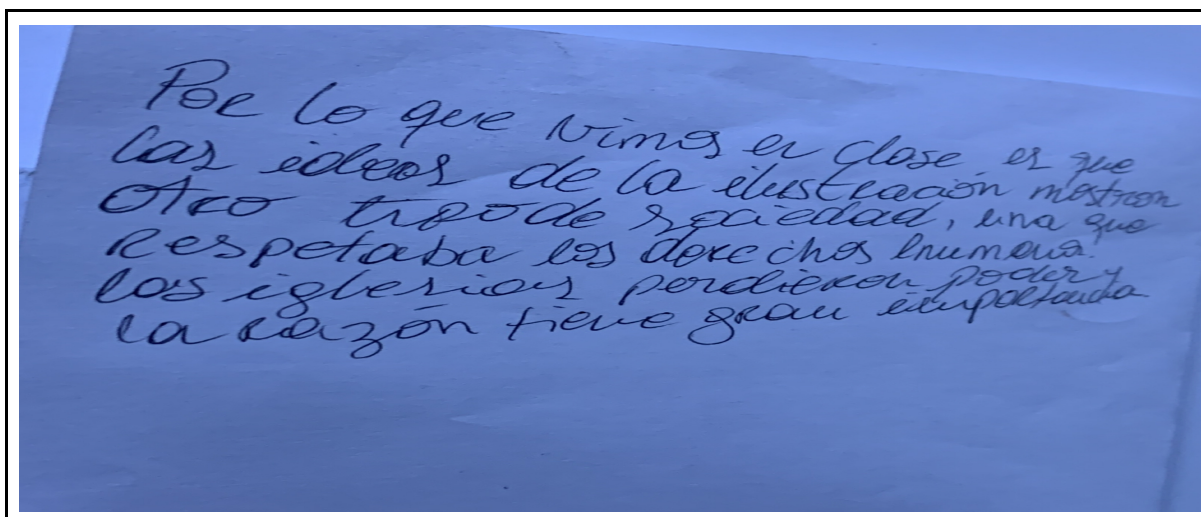 Por lo que vimos en clase es que
las ideas de la ilustración mostraron
otro tipo de sociedad, una que
respetaba los derechos humanos.
las iglesias perdieron poder y
la razón tiene gran importancia